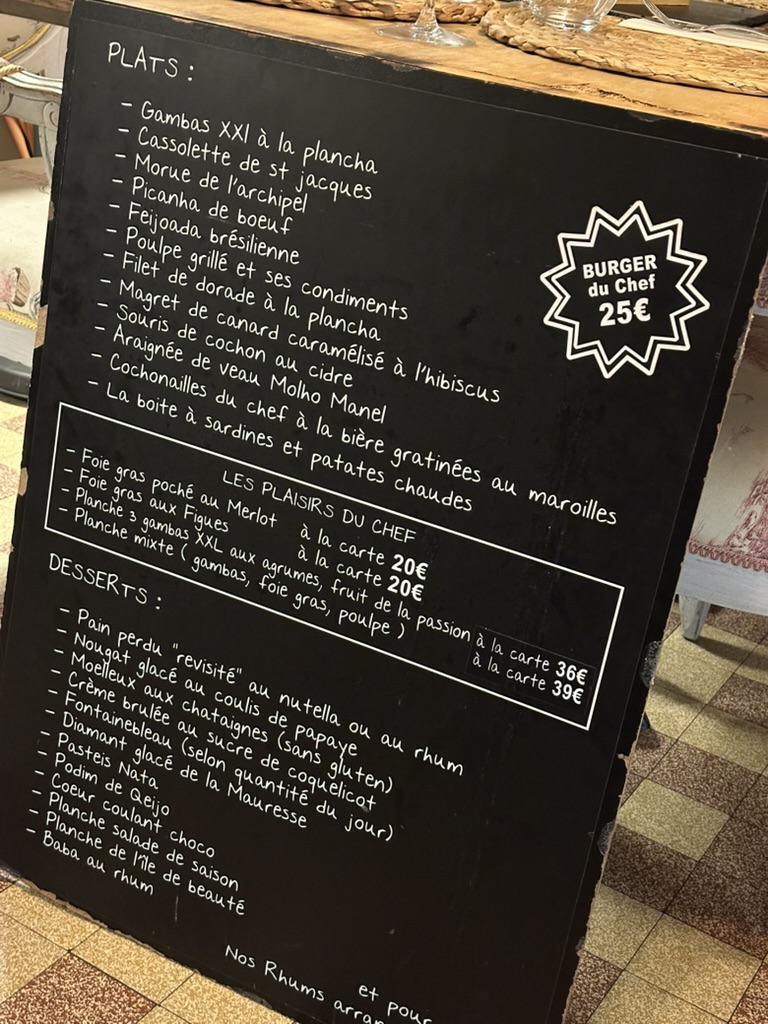 PLATS :
- Gambas XXl à la plancha
- Cassolette de st jacques
- Morue de l'archipel
- Picanha de boeuf
- Feijoada brésilienne
- Poulpe grillé et ses condiments
- Filet de dorade à la plancha
- Magret de canard caramélisé à l'hibiscus
- Souris de cochon au cidre
- Araignée de veau Molho Manel
- Cochonailles du chef à la bière gratinées au maroilles
- La boite à sardines et patates chaudes
BURGER
du Chef
25€
LES PLAISIRS DU CHEF
- Foie gras poché au Merlot à la carte 20€
- Foie gras aux Figues à la carte 20€
- Planche 3 gambas XXL aux agrumes, fruit de la passion à la carte 36€
- Planche mixte ( gambas, foie gras, poulpe ) à la carte 39€
DESSERTS :
- Pain perdu "revisité" au nutella ou au rhum
- Nougat glacé au coulis de papaye
- Moelleux aux chataignes (sans gluten)
- Crème brulée au sucre de coquelicot
- Fontainebleau (selon quantité du jour)
- Diamant glacé de la Mauresse
- Pasteis Nata
- Podim de Qeijo
- Coeur coulant choco
- Planche salade de saison
- Planche de l'île de beauté
- Baba au rhum
et pour
Nos Rhums arran